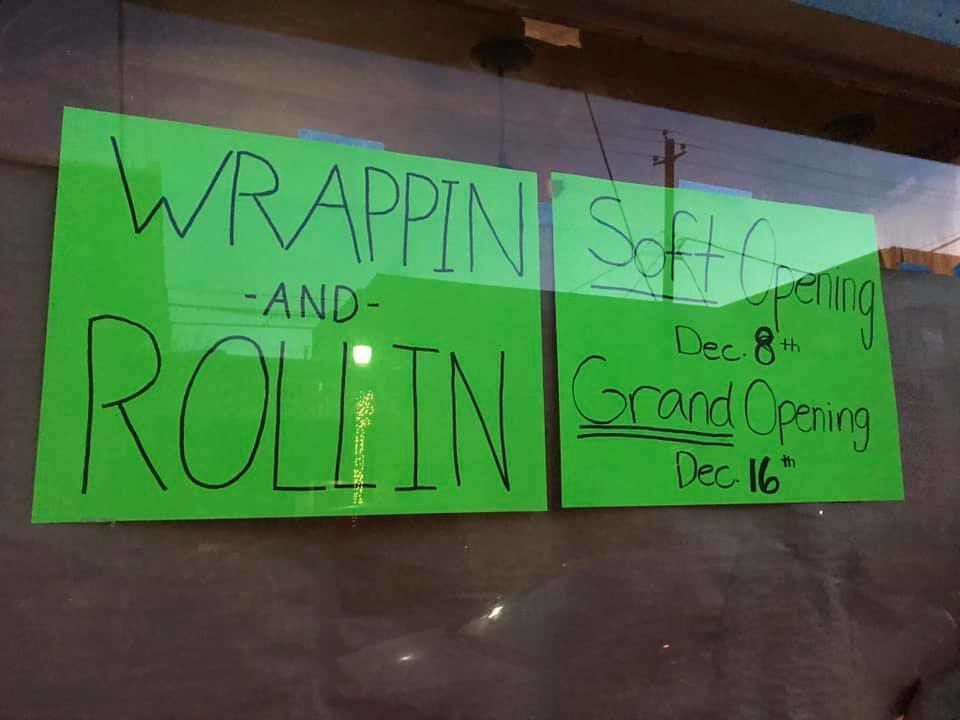 WRAPPIN
-AND-
ROLLIN
Soft Opening
Dec. 8th
Grand Opening
Dec. 16th